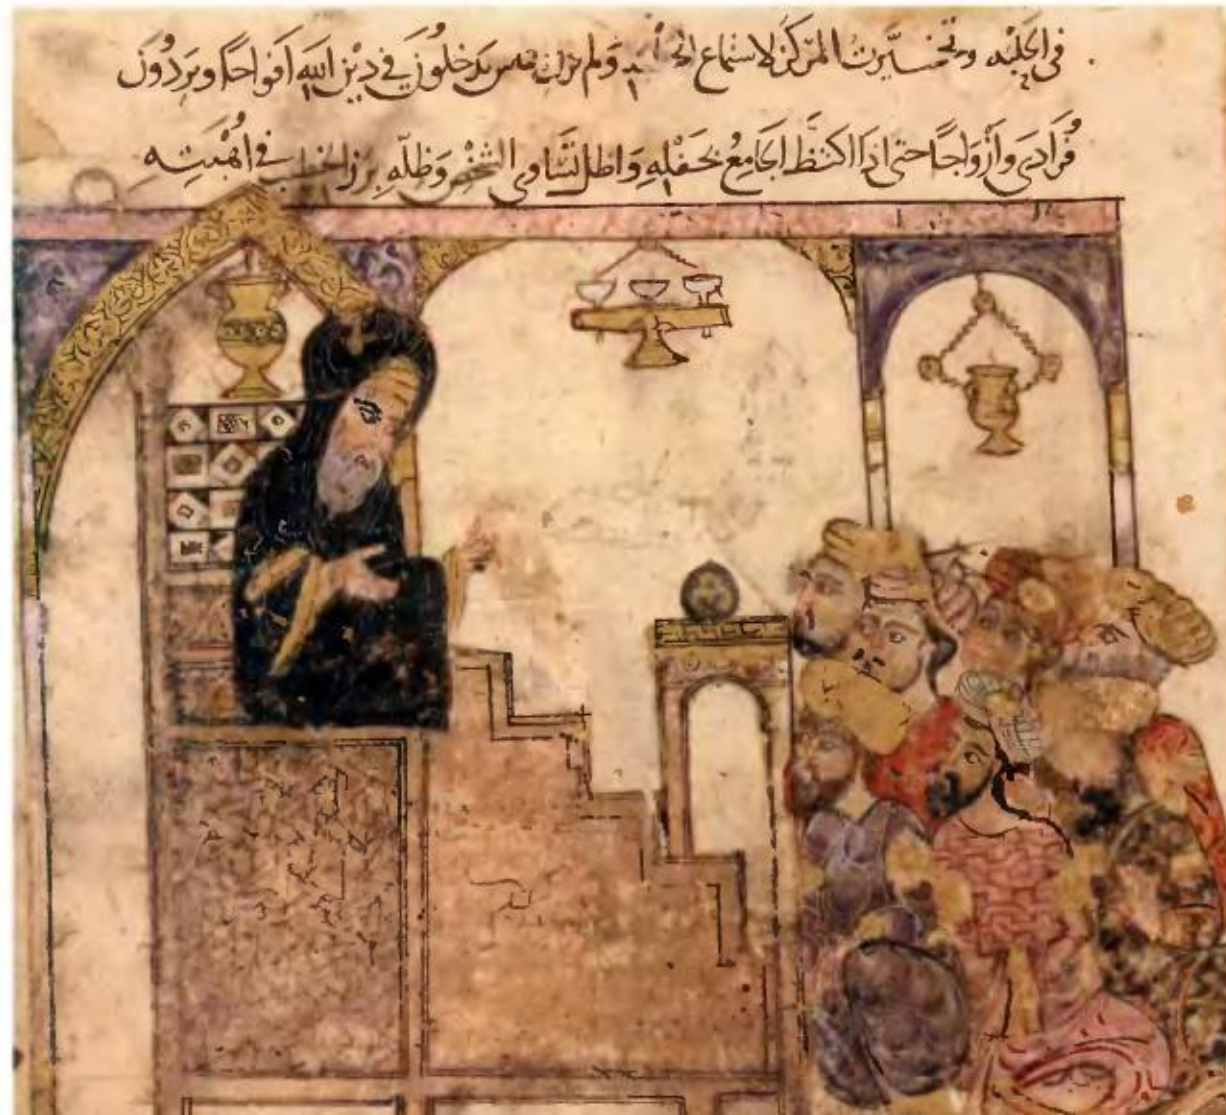 في الحلبه وتخيرت المركز لاستماع ولم يدخلون في دين الله افواجا ويردون
فرادى وأزواجا حتى اذا اكتظ الجامع بحفله واظل تساوي الشخص وظله برز الخطيب في اهبته